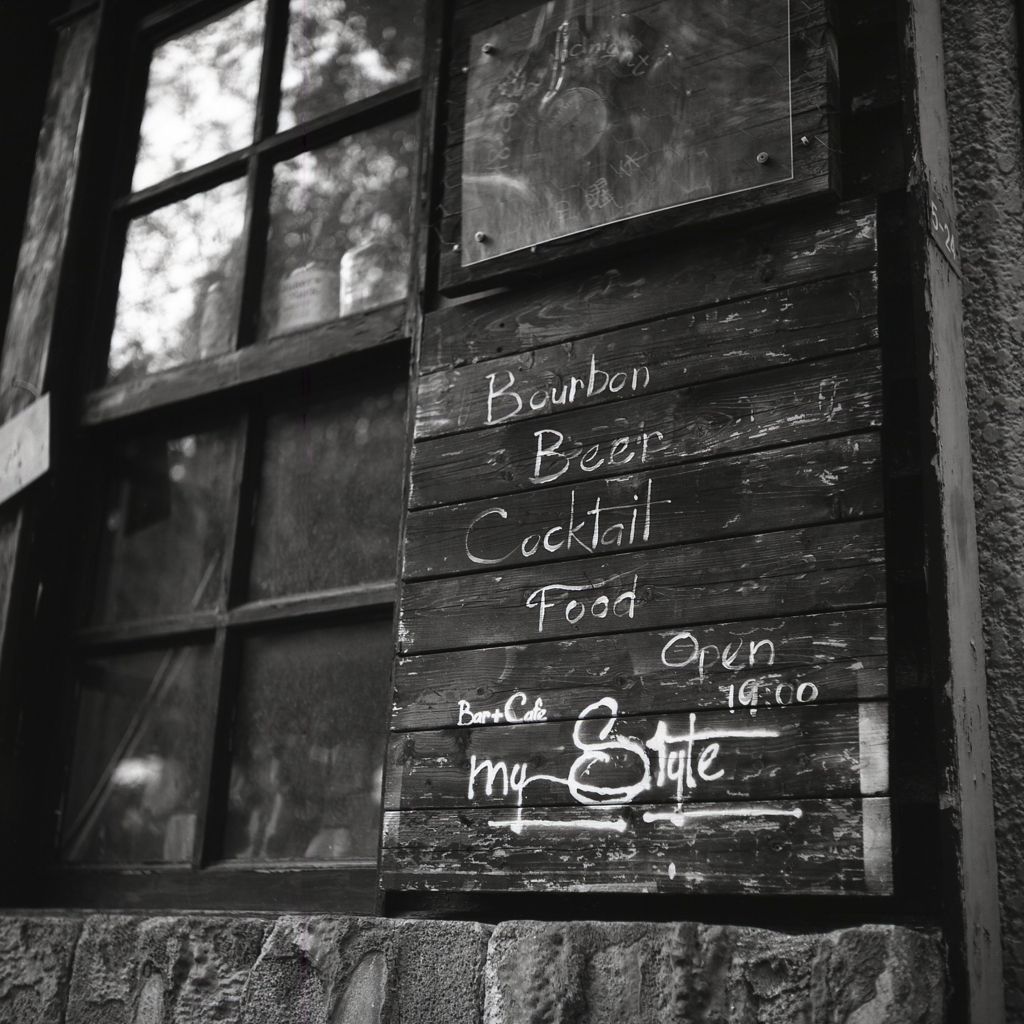 Bourbon
Beer
Cocktail
Food
Open
19:00
Bar+Cafe
my Style